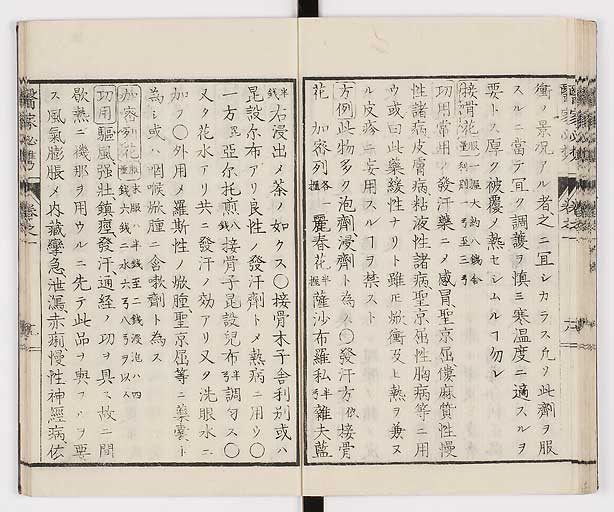 衝ノ景況アル者之ニ宜シカラス凢ソ此劑ヲ服
スルニ當テ宜ク調護ヲ慎ミ寒温度ニ適スルヲ
要トス厚ク被覆メ熱セシムルヿ勿レ
接骨花
功用常用ノ發汗藥ニメ感冒聖京屈僂麻質性慢
性諸病皮膚病粘液性諸病聖京屈性胸病等ニ用
ウ或曰此藥緩性ナリト雖𪜈焮衝及上熱ヲ兼ヌ
ル皮疹ニ妄用スルヿヲ禁スト
方例此物多ク泡劑浸劑ト為ス〇發汗方 接骨
花 加密列 麗春花 薩沙布羅私 雜夫藍
半錢 右浸出メ茶ノ如クス〇接骨木子舎利別或ハ
昆設尓布アリ良性ノ發汗劑トメ熱病ニ用ウ〇
一方 亞尓托煎 接骨子昆設兒布 調勻ス〇
又タ花水アリ共ニ發汗ノ効アリ又タ洗眼水ニ
加フ〇外用メ羅斯性ノ焮腫聖京屈等ニ 嚢ト
為シ或ハ咽喉焮腫ニ含嗽劑ト為ス
加密列花
功用驅風強壮鎮痙發汗通經ノ功ヲ具ス故ニ間
歇熱ニ機那ヲ用ウルニ先テ此品ヲ與フルヲ要
ス風氣膨脹メ内臓攣急泄瀉赤痢慢性神經病依